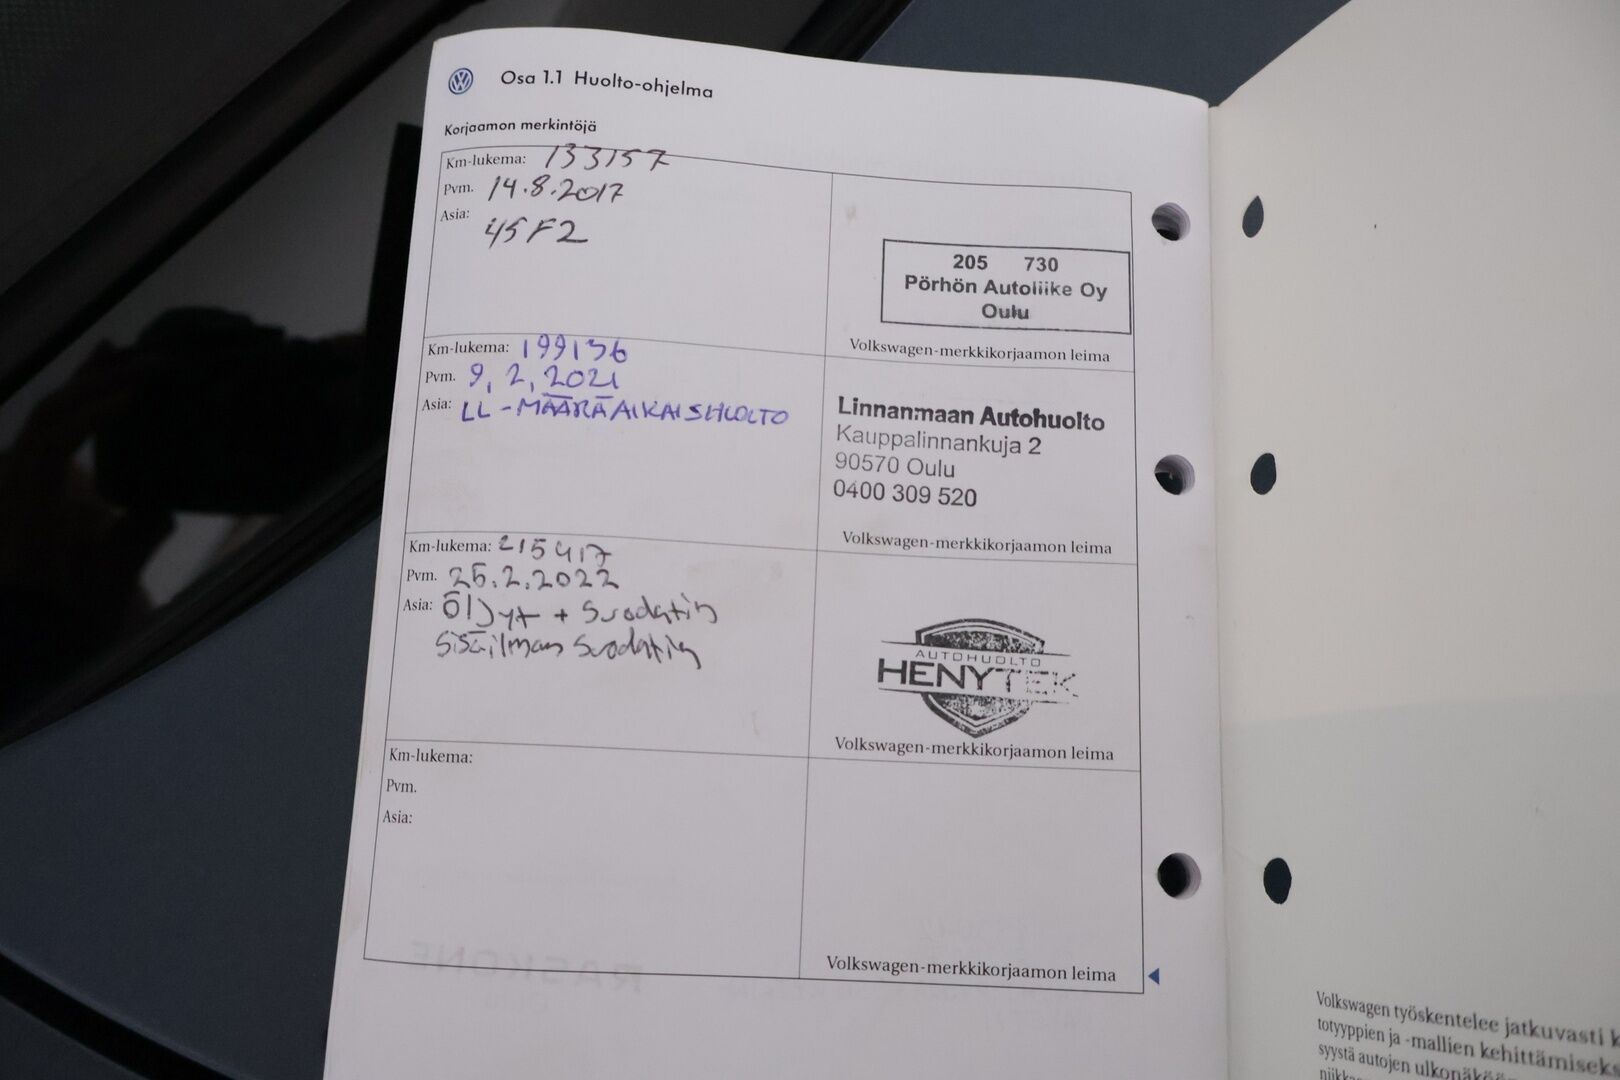 Osa 1.1 Huolto-ohjelma
Korjaamon merkintöjä
Km-lukema: 133157
Pvm. 14.8.2017
Asia: 45F2
205 730
Pörhön Autoliike Oy
Oulu
Volkswagen-merkkikorjaamon leima
Km-lukema: 199136
Pvm. 9,2,2021
Asia: LL-MÄÄRÄAIKAISHUOLTO
Linnanmaan Autohuolto
Kauppalinnankuja 2
90570 Oulu
0400 309 520
Volkswagen-merkkikorjaamon leima
Km-lukema: 215417
Pvm. 25.2.2022
Asia: Öljyt + Suodatin
Sisäilman Suodatin
AUTOHUOLTO
HENYTEK
Volkswagen-merkkikorjaamon leima
Km-lukema:
Pvm.
Asia:
Volkswagen-merkkikorjaamon leima
Volkswagen työskentelee jatkuvasti
totyyppien ja -mallien
syystä autojen